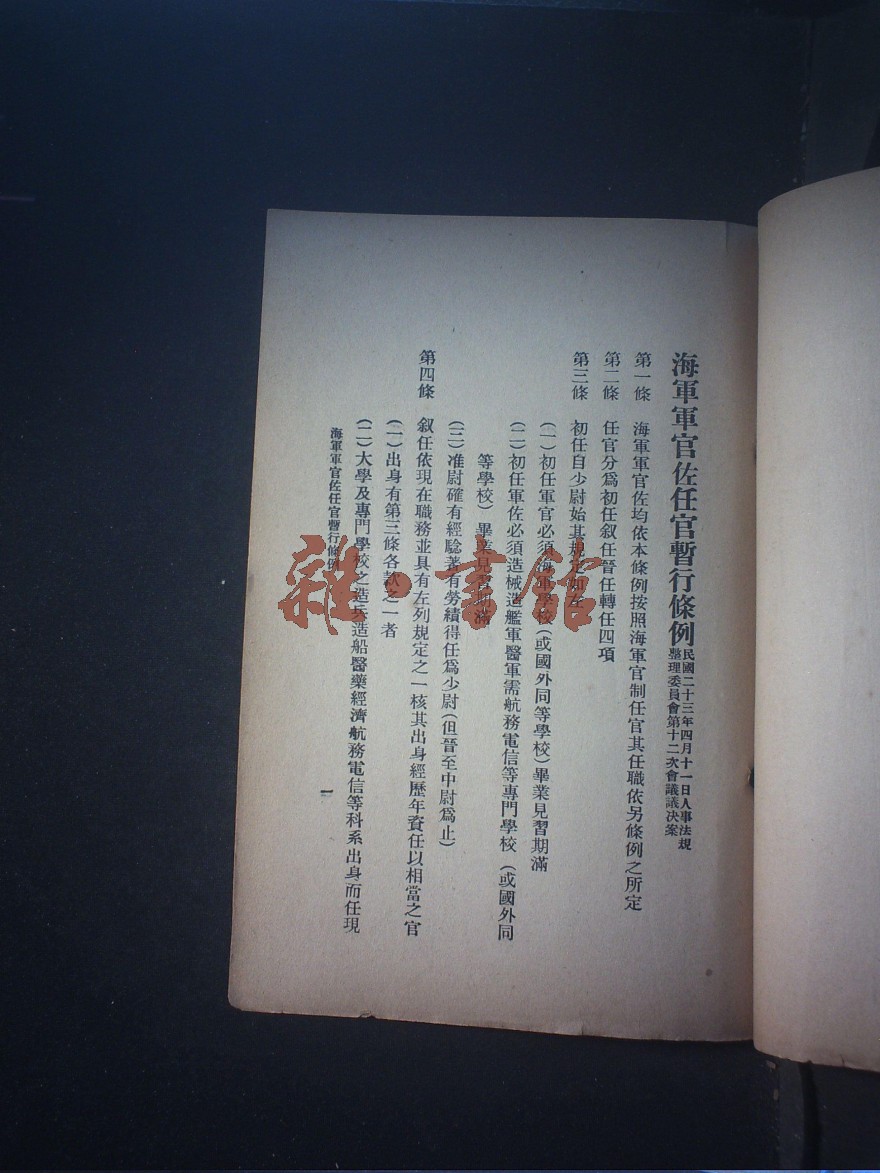 海軍軍官佐任官暫行條例
民國二十三年四月十一日人事法規
整理委員會第十二次會議議決案
第一條　海軍軍官佐均依本條例按照海軍官制任官其任職依另條例之所定
第二條　任官分爲初任叙任晉任轉任四項
第三條　初任自少尉始其規定如左
(一)初任軍官必須海軍學校(或國外同等學校)畢業見習期滿
(二)初任軍佐必須造械造艦軍醫軍需航務電信等專門學校(或國外同
等學校)畢業見習期滿
(三)准尉確有經驗著有勞績得任爲少尉(但晉至中尉爲止)
第四條　叙任依現在職務並具有左列規定之一核其出身經歷年資任以相當之官
(一)出身有第三條各款之一者
(二)大學及專門學校之造兵造船醫藥經濟航務電信等科系出身而任現
海軍軍官佐任官暫行條例
一
雜·書館